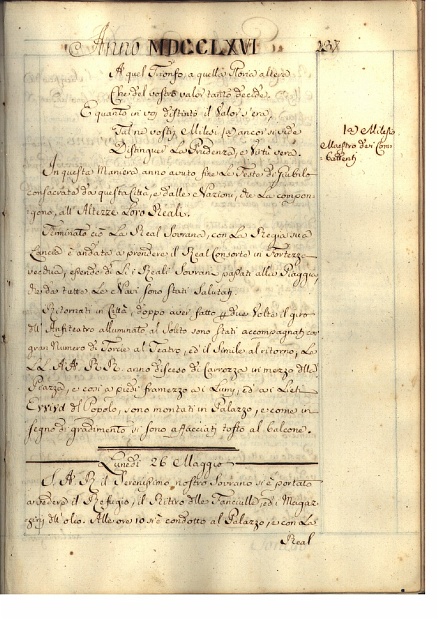 Anno MDCCLXVI
A quel Trionfo, a quella Gloria altera
Che del vostro valor tanto decide.
E quanto in voi distinto il Valor s'era,
Tal ne vostri Milesi ancor si vide
Distinguer La Prudenza, e Virtù vera.
In questa Maniera anno avuto fine Le Feste di Giubilo
consacrate da questa Città, e dalle Nazioni, che La compon-
gono, all' Altezze Loro Reali.
Terminato ciò La Real Sovrana, con La Regia sua
Lancia è andata a prendere il Real Consorte in Fortezza
vecchia, essendo di Lì i Reali Sovrani passati alla Piaggia,
che da tutte Le Navi sono stati Salutati.
Ritornati in Città, doppo aver fatto per due Volte il giro
dell' Anfiteatro alluminato al Solito sono Stati accompagnati con
gran Numero di Torcie al Teatro, ed il Simile al ritorno, La
LL. AA. RR. anno disceso di Carrozza in mezzo della
Piazza, e così a piedi framezzo ai Lumi, ed ai Lieti
Evviva del Popolo, sono montati in Palazzo, e come in
segno di gradimento si sono affacciati tosto al balcone.
Lunedì 26 Maggio
S. A. R. il Serenissimo nostro Sovrano si è portato
a vedere il Refugio, il Ritiro delle Fanciulle, ed i Magaz-
zini dell' olio. Alle ore 10 si è condotto al Palazzo, e con La
Real
Milesi
Maestro dei Com-
battenti